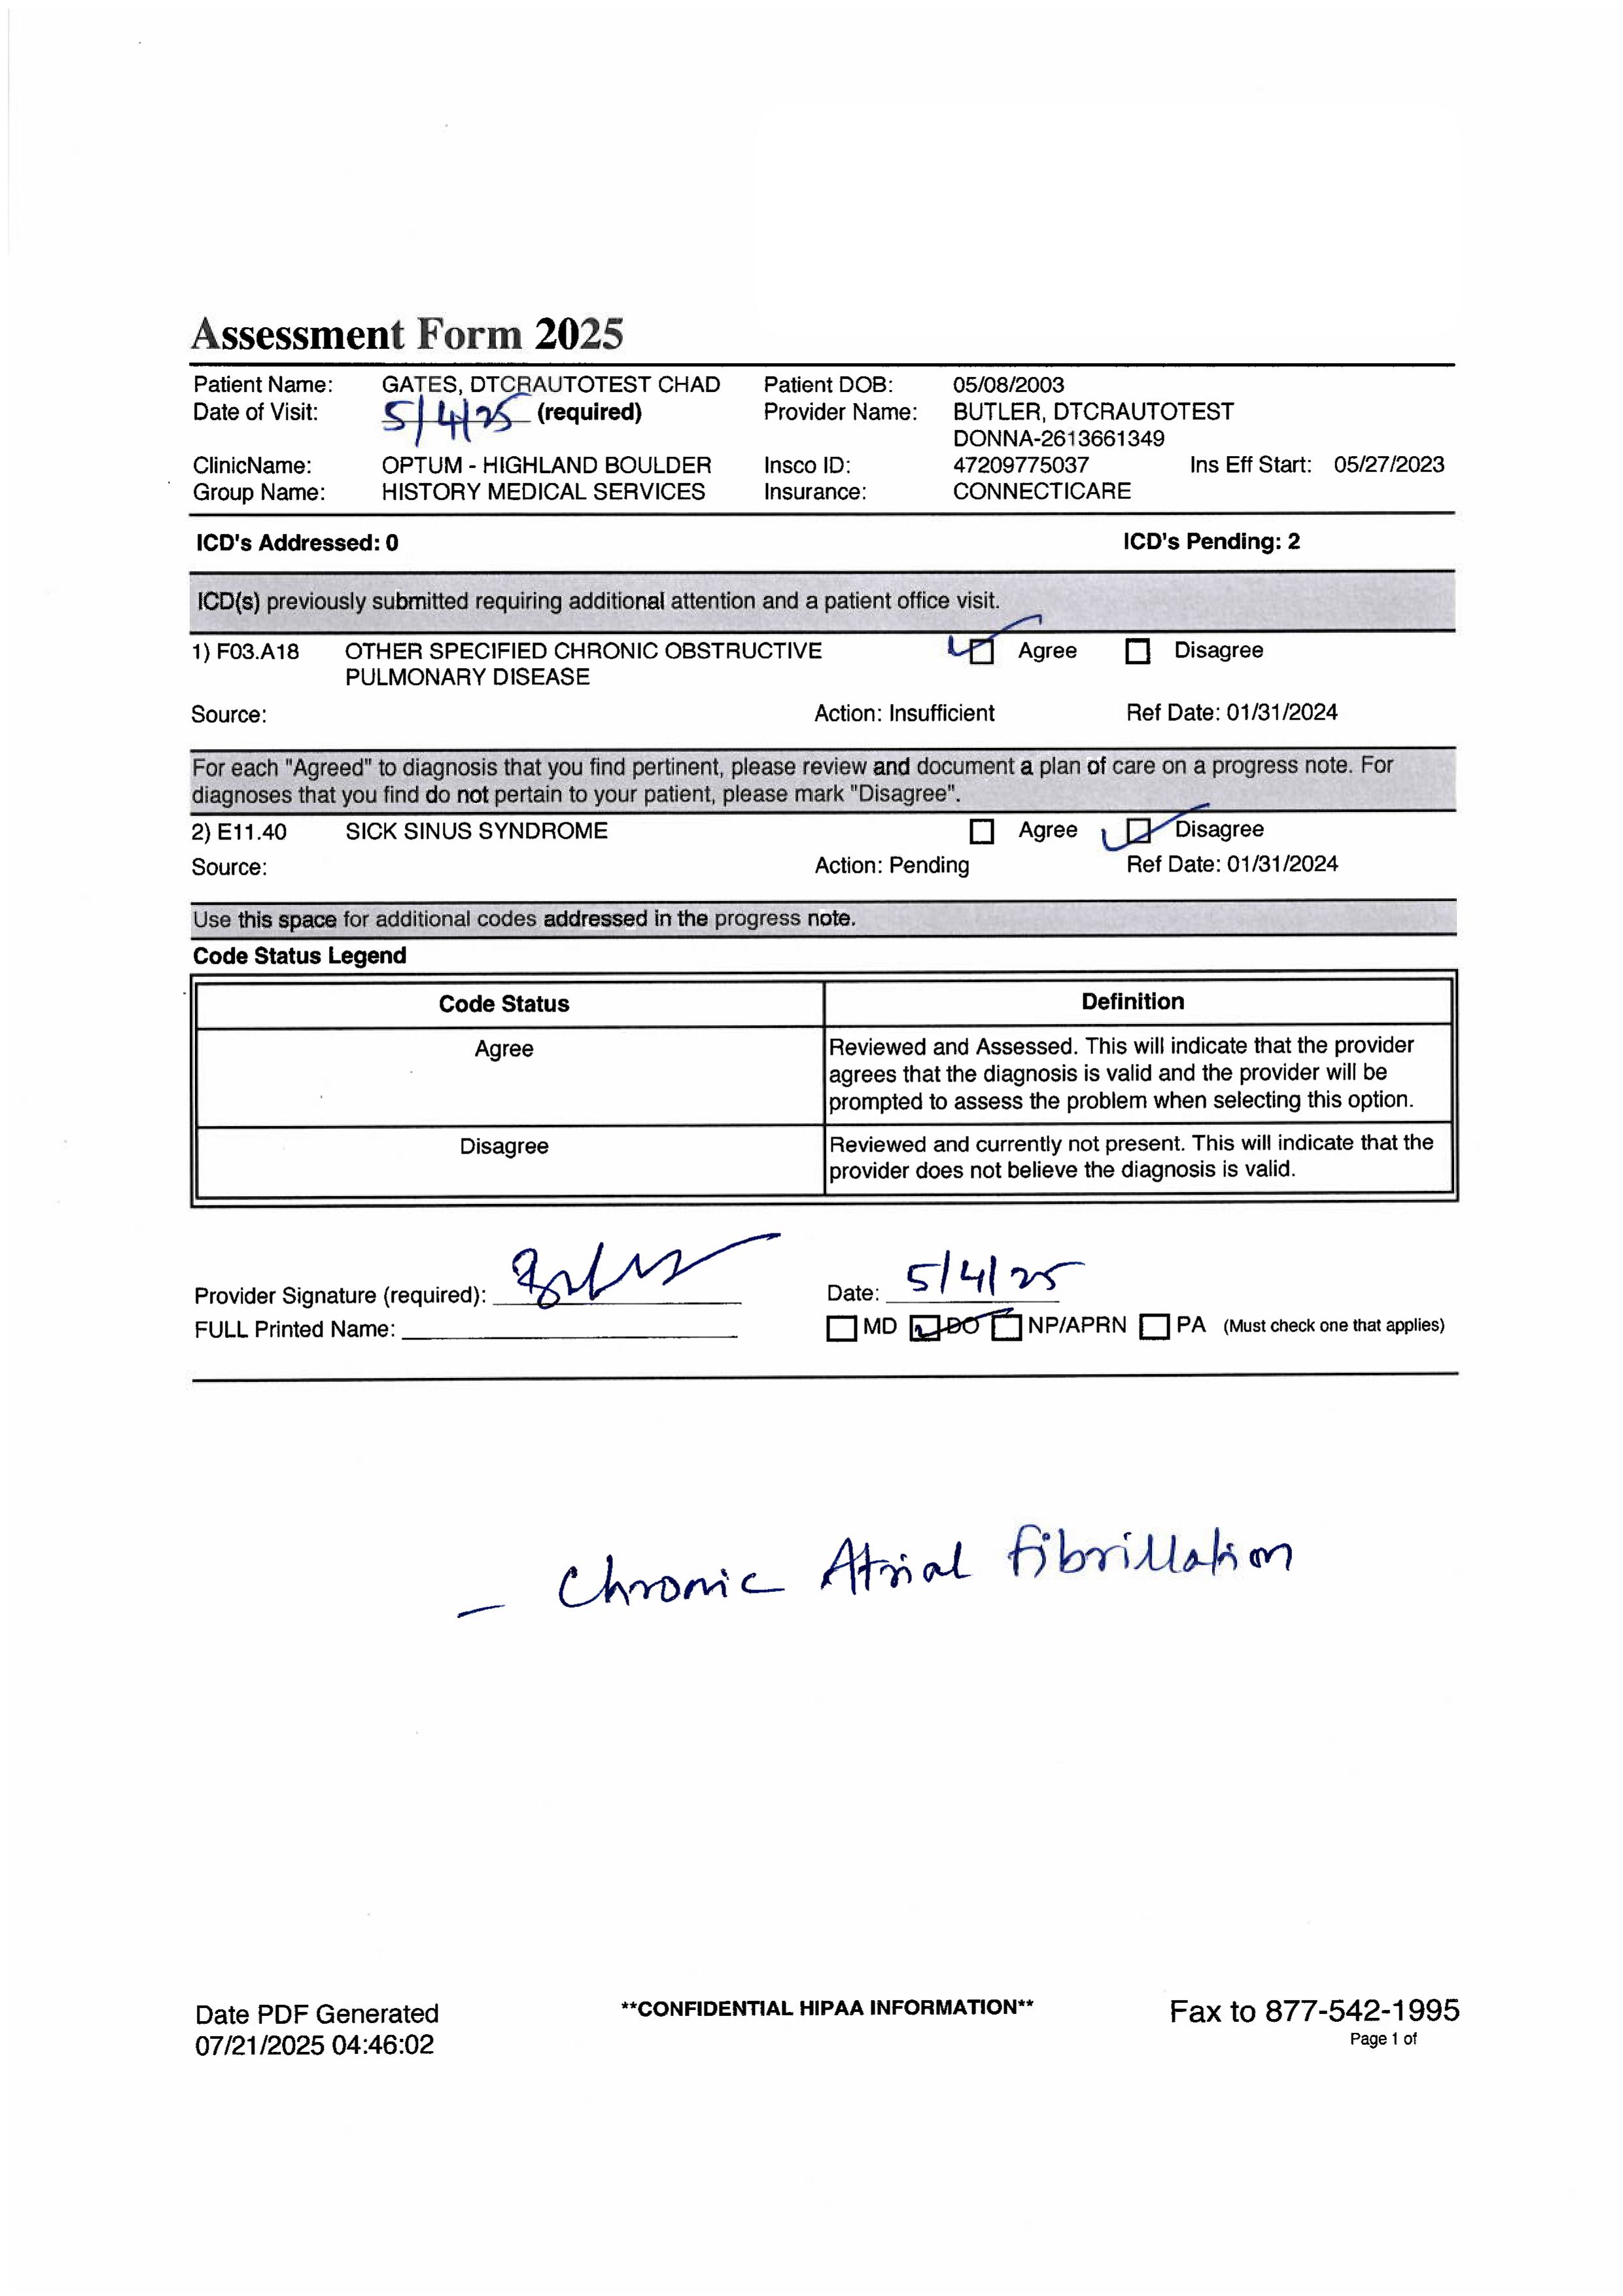 Assessment Form 2025
Patient Name: GATES, DTCRAUTOTEST CHAD Patient DOB: 05/08/2003
Date of Visit: 5/4/25 (required) Provider Name: BUTLER, DTCRAUTOTEST
DONNA-2613661349
ClinicName: OPTUM - HIGHLAND BOULDER Insco ID: 47209775037 Ins Eff Start: 05/27/2023
Group Name: HISTORY MEDICAL SERVICES Insurance: CONNECTICARE
ICD's Addressed: 0 ICD's Pending: 2
ICD(s) previously submitted requiring additional attention and a patient office visit.
1) F03.A18 OTHER SPECIFIED CHRONIC OBSTRUCTIVE Agree Disagree
PULMONARY DISEASE
Source: Action: Insufficient Ref Date: 01/31/2024
For each "Agreed" to diagnosis that you find pertinent, please review and document a plan of care on a progress note. For
diagnoses that you find do not pertain to your patient, please mark "Disagree".
2) E11.40 SICK SINUS SYNDROME Agree Disagree
Source: Action: Pending Ref Date: 01/31/2024
Use this space for additional codes addressed in the progress note.
Code Status Legend
Code Status Definition
Agree Reviewed and Assessed. This will indicate that the provider
agrees that the diagnosis is valid and the provider will be
prompted to assess the problem when selecting this option.
Disagree Reviewed and currently not present. This will indicate that the
provider does not believe the diagnosis is valid.
Provider Signature (required): Date: 5/4/25
FULL Printed Name: MD DO NP/APRN PA (Must check one that applies)
- Chronic Atrial fibrillation
Date PDF Generated **CONFIDENTIAL HIPAA INFORMATION** Fax to 877-542-1995
07/21/2025 04:46:02 Page 1 of